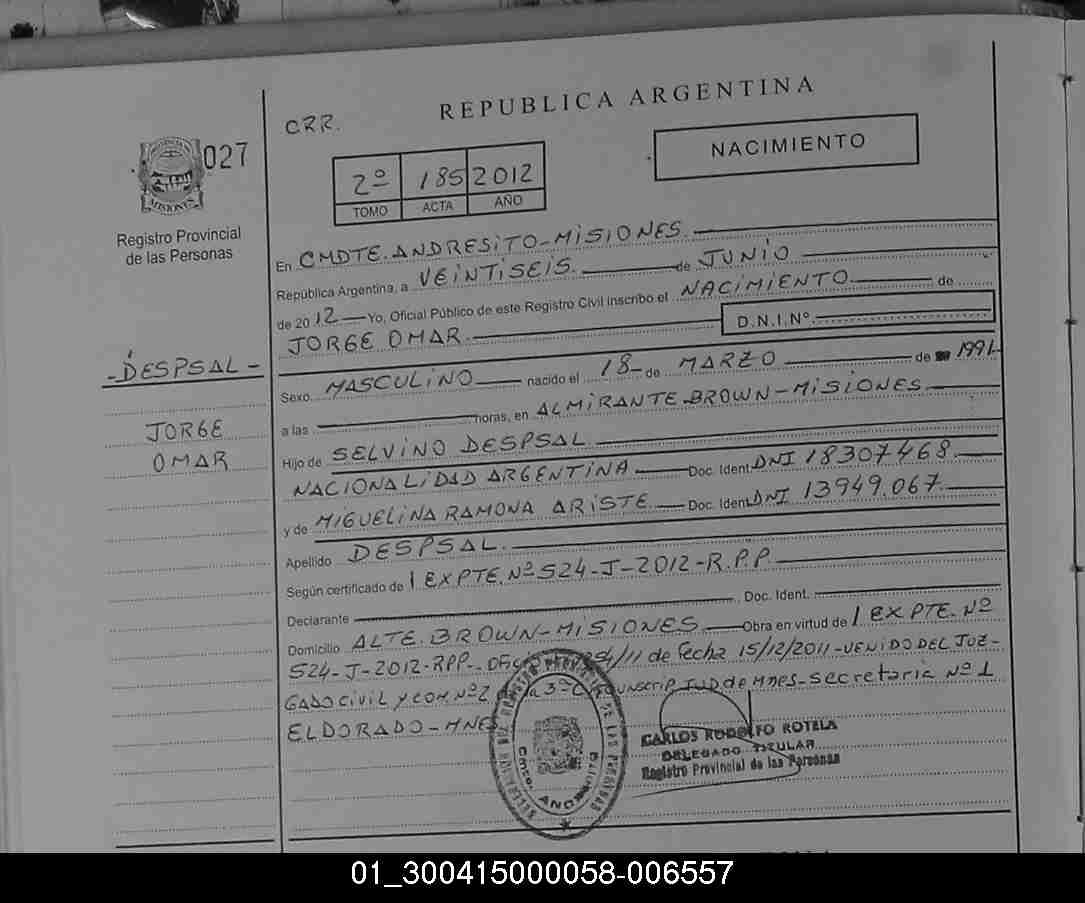 REPUBLICA ARGENTINA
CRR.
027
NACIMIENTO
2º 185 2012
TOMO ACTA AÑO
MISIONES
Registro Provincial
de las Personas
En CMDTE. ANDRESITO-MISIONES
República Argentina, a VEINTISEIS de JUNIO
de 2012 Yo, Oficial Público de este Registro Civil inscribo el NACIMIENTO de
JORGE OMAR D.N.I.Nº
-DESPSAL-
JORGE
OMAR
Sexo MASCULINO nacido el 18 de MARZO de 1991
a las horas, en ALMIRANTE BROWN-MISIONES
Hijo de SELVINO DESPSAL
NACIONALIDAD ARGENTINA Doc. Ident. DNI 18307468
y de MIGUELINA RAMONA ARISTE Doc. Ident. DNI 13949.067
Apellido DESPSAL
Según certificado de EXPTE. Nº 524-J-2012-R.P.P.
Declarante Doc. Ident.
Domicilio ALTE. BROWN-MISIONES Obra en virtud de EXPTE. Nº
524-J-2012-RPP- /11 de fecha 15/12/2011-VENIDO DEL JUZ-
GADO CIVIL Y COM Nº2 3º JUD de Mnes-Secretaria Nº 1
ELDORADO-MNE
CARLOS RODOLFO ROTELA
DELEGADO TITULAR
Registro Provincial de las Personas
01_300415000058-006557